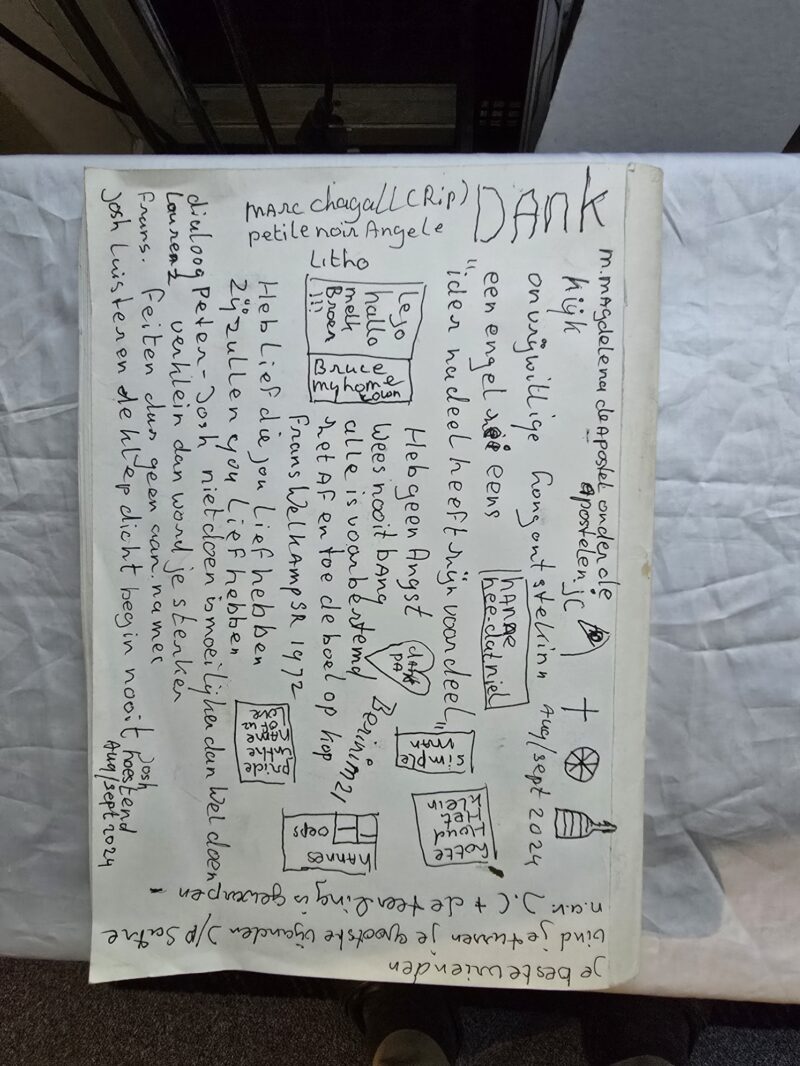 DANK
MARC chagall (Rip)
petite noir Angele
Litho
M. MAgdelena de Apostel onder de
Apostelen jc
kijk
onvrijwillige hongontstekinn Aug/sept 2024
een engel eens
hee-dat niet
"ider nadeel heeft zijn voordeel"
simple
man
Lejo
hallo
melk
Broer
!!!
Bruce
my home
town
Heb geen Angst
Wees nooit bang
alle is voorbestemd
zet Af en toe de boel op kop
frans WelkAmp SR 1972
PA
Heb Lief die jou Liefhebben
Zij zullen you Liefhebben
dialoog Peter-Josh niet doen is moeilijker dan Wel doen
Laurenz verklein dan word je sterker
frans. feiten dus geen aan.namen
Josh Luisteren de klep dicht begin nooit hoestend
Josh
Aug/sept 2024
Lotte
Teud
Het
klein
hannes
oeps
n.a.v. J.C + de teerling is geworpen
vind je tussen je grootste vijanden J/P Satre
je beste vrienden